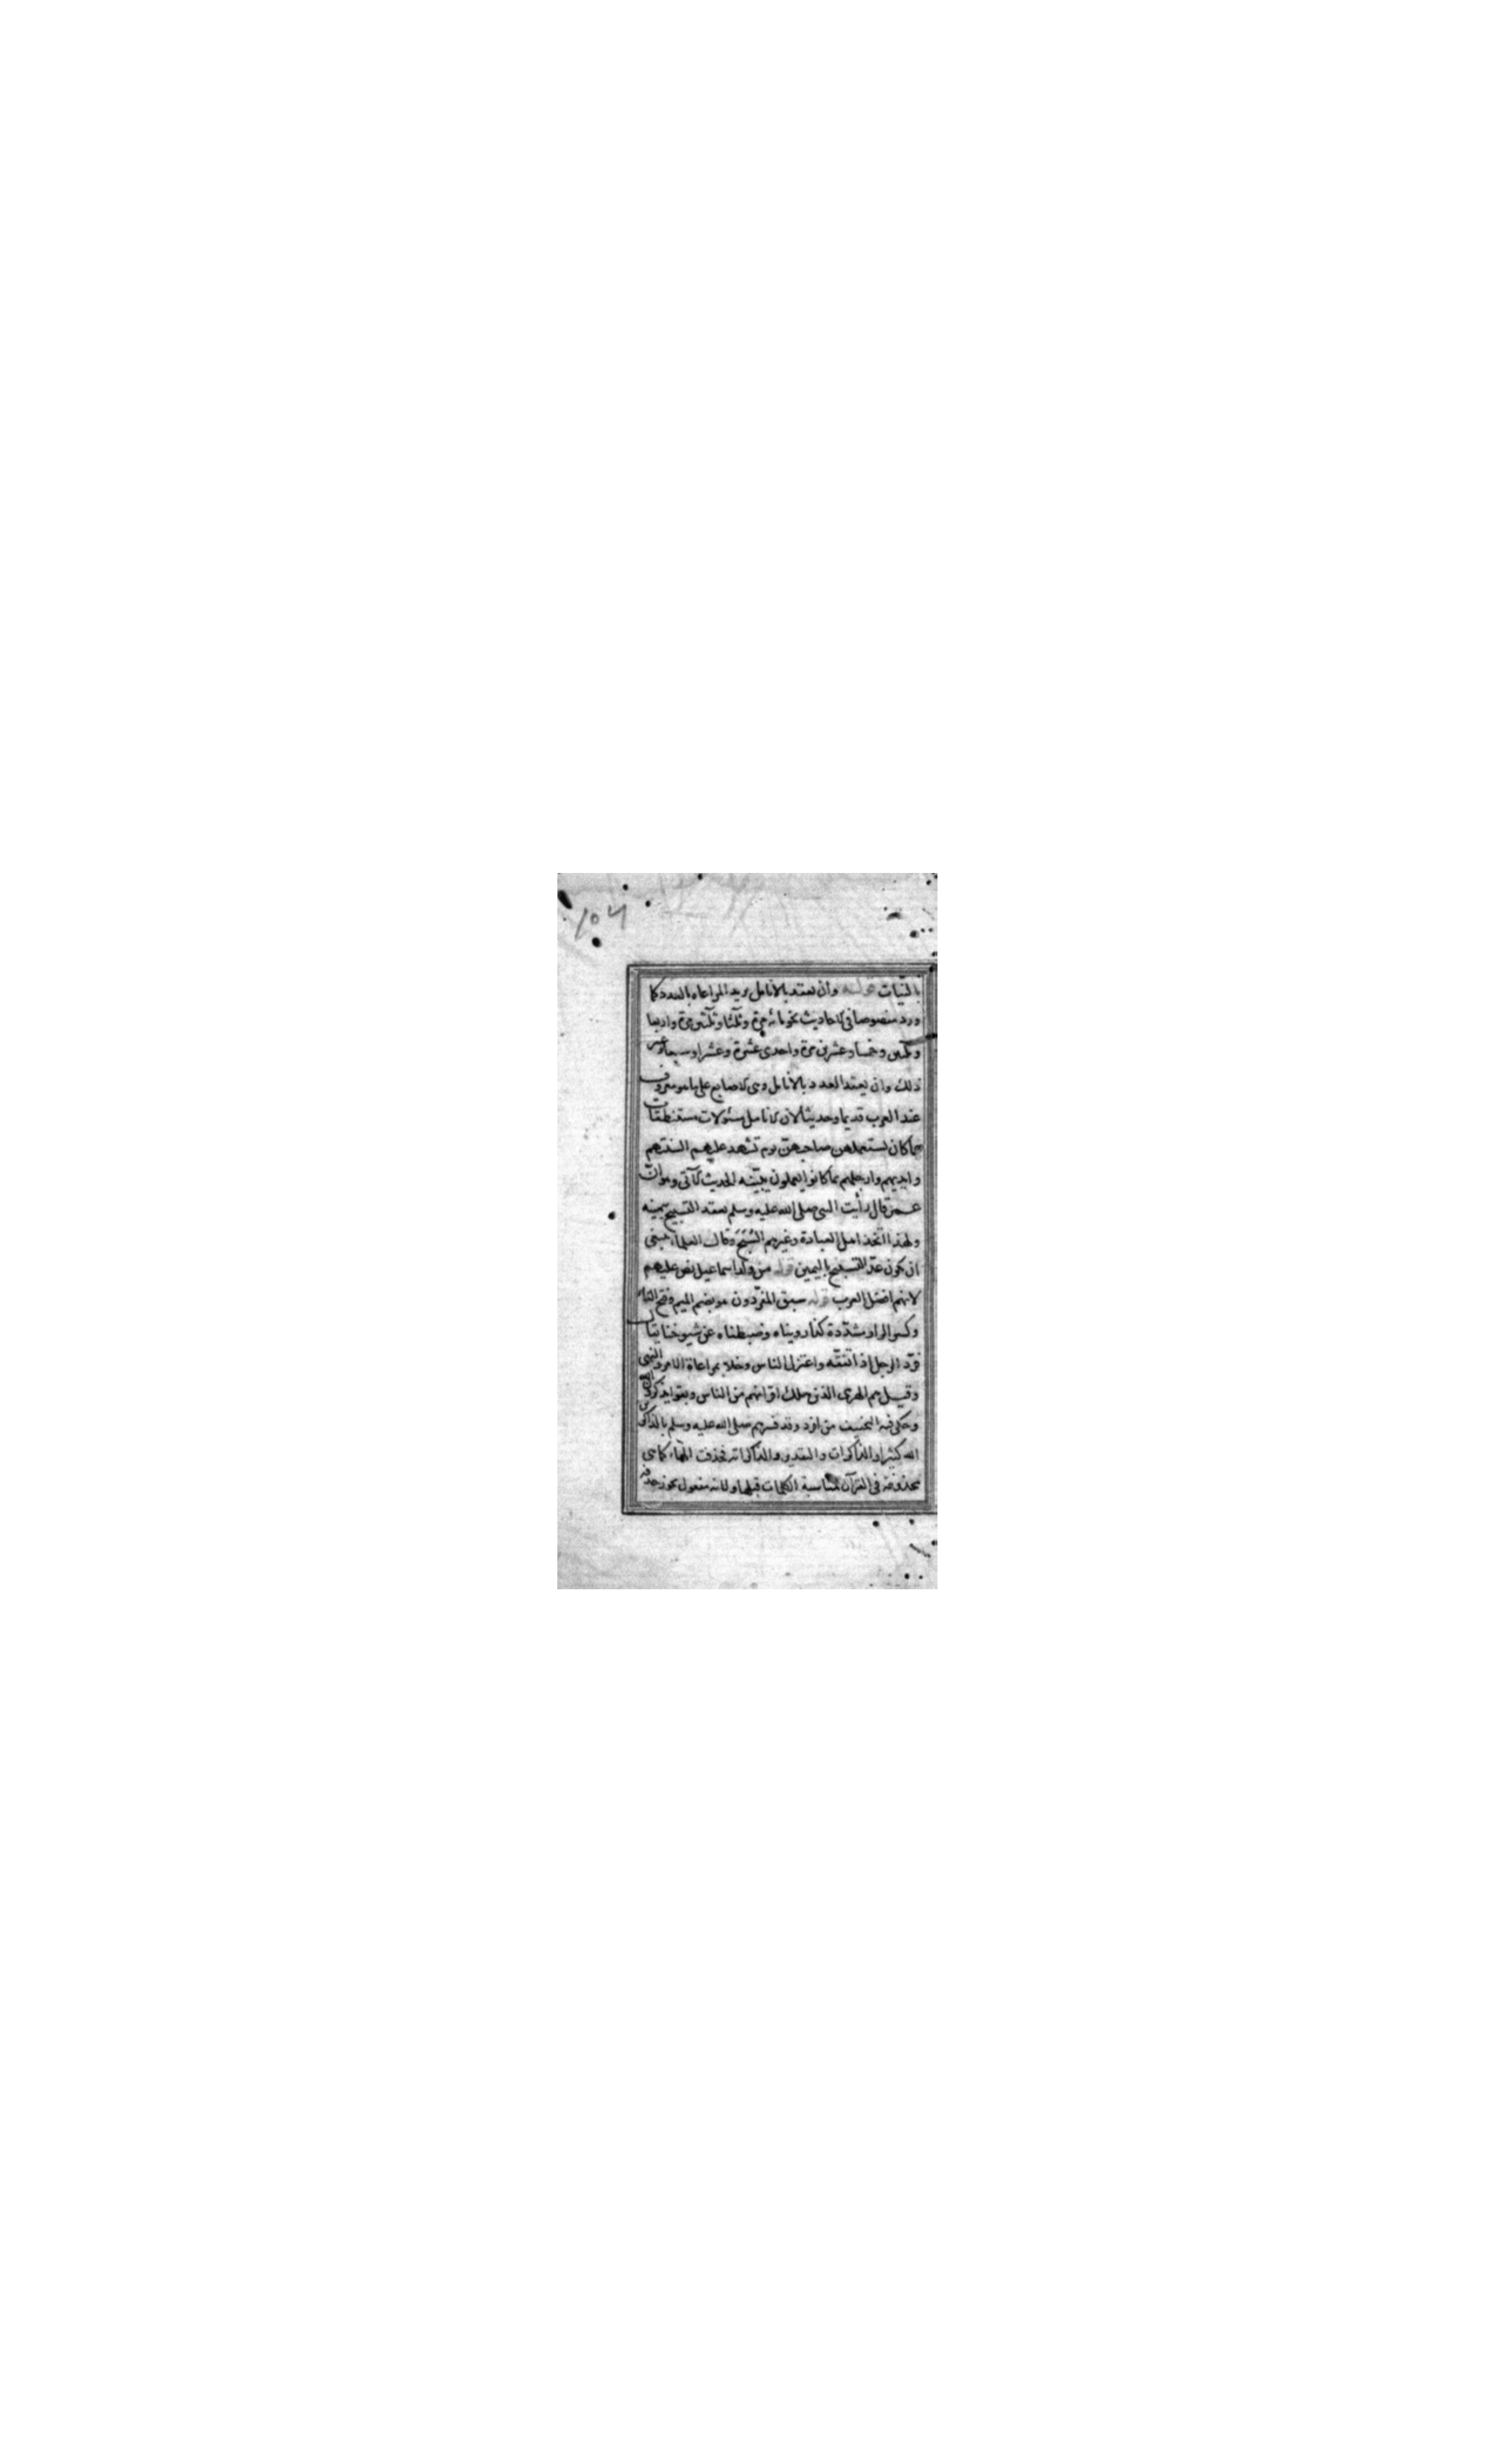 بالنيات قوله وان يعقد بالانامل يريد المراعاه بالعدد كما
ورد منصوصا فى الاحاديث نحو مائة مرة وثلثا وثلثين مرة واربعا
وثلثين وخمسا وعشرين مرة واحدى عشرة وعشرا وسبعا وغير
ذلك وان يعقد العدد بالانامل وهى الاصابع على ما هو معروف
عند العرب قديما وحديثا لان الانامل مسئولات مستنطقات
بما كان يستعملهن صاحبهن يوم تشهد عليهم السنتهم
وايديهم وارجلهم بما كانوا يعملون يبينه الحديث الآتى وهو ان
عمر قال رأيت النبى صلى الله عليه وسلم يعقد التسبيح بيمينه
ولهذا اتخذ اهل العبادة وغيرهم السُّبَحَ وقال العلماء ينبغى
ان يكون عدّ التسبيح باليمين قوله من ولد اسماعيل نص عليهم
لانهم افضل العرب قوله سبق المفرّدون هو بضم الميم وفتح الفاء
وكسر الراء مشدّدة كذا رويناه وضبطناه عن شيوخنا يقال
فرّد الرجل اذا تفقّه واعتزل الناس وخلا بمراعاة الامر والنهى
وقيل هم الهرمى الذين هلك اقرانهم من الناس وبقوا يذكرون الله
وحكى فيه التخفيف من افرد وقد فسرهم صلى الله عليه وسلم بالذاكرين
الله كثيرا والذاكرات والتقدير والذاكراته فحذفت الهاء كما هى
محذوفة فى القرآن لمناسبة الكلمات قبلها ولانه مفعول يجوز حذفه